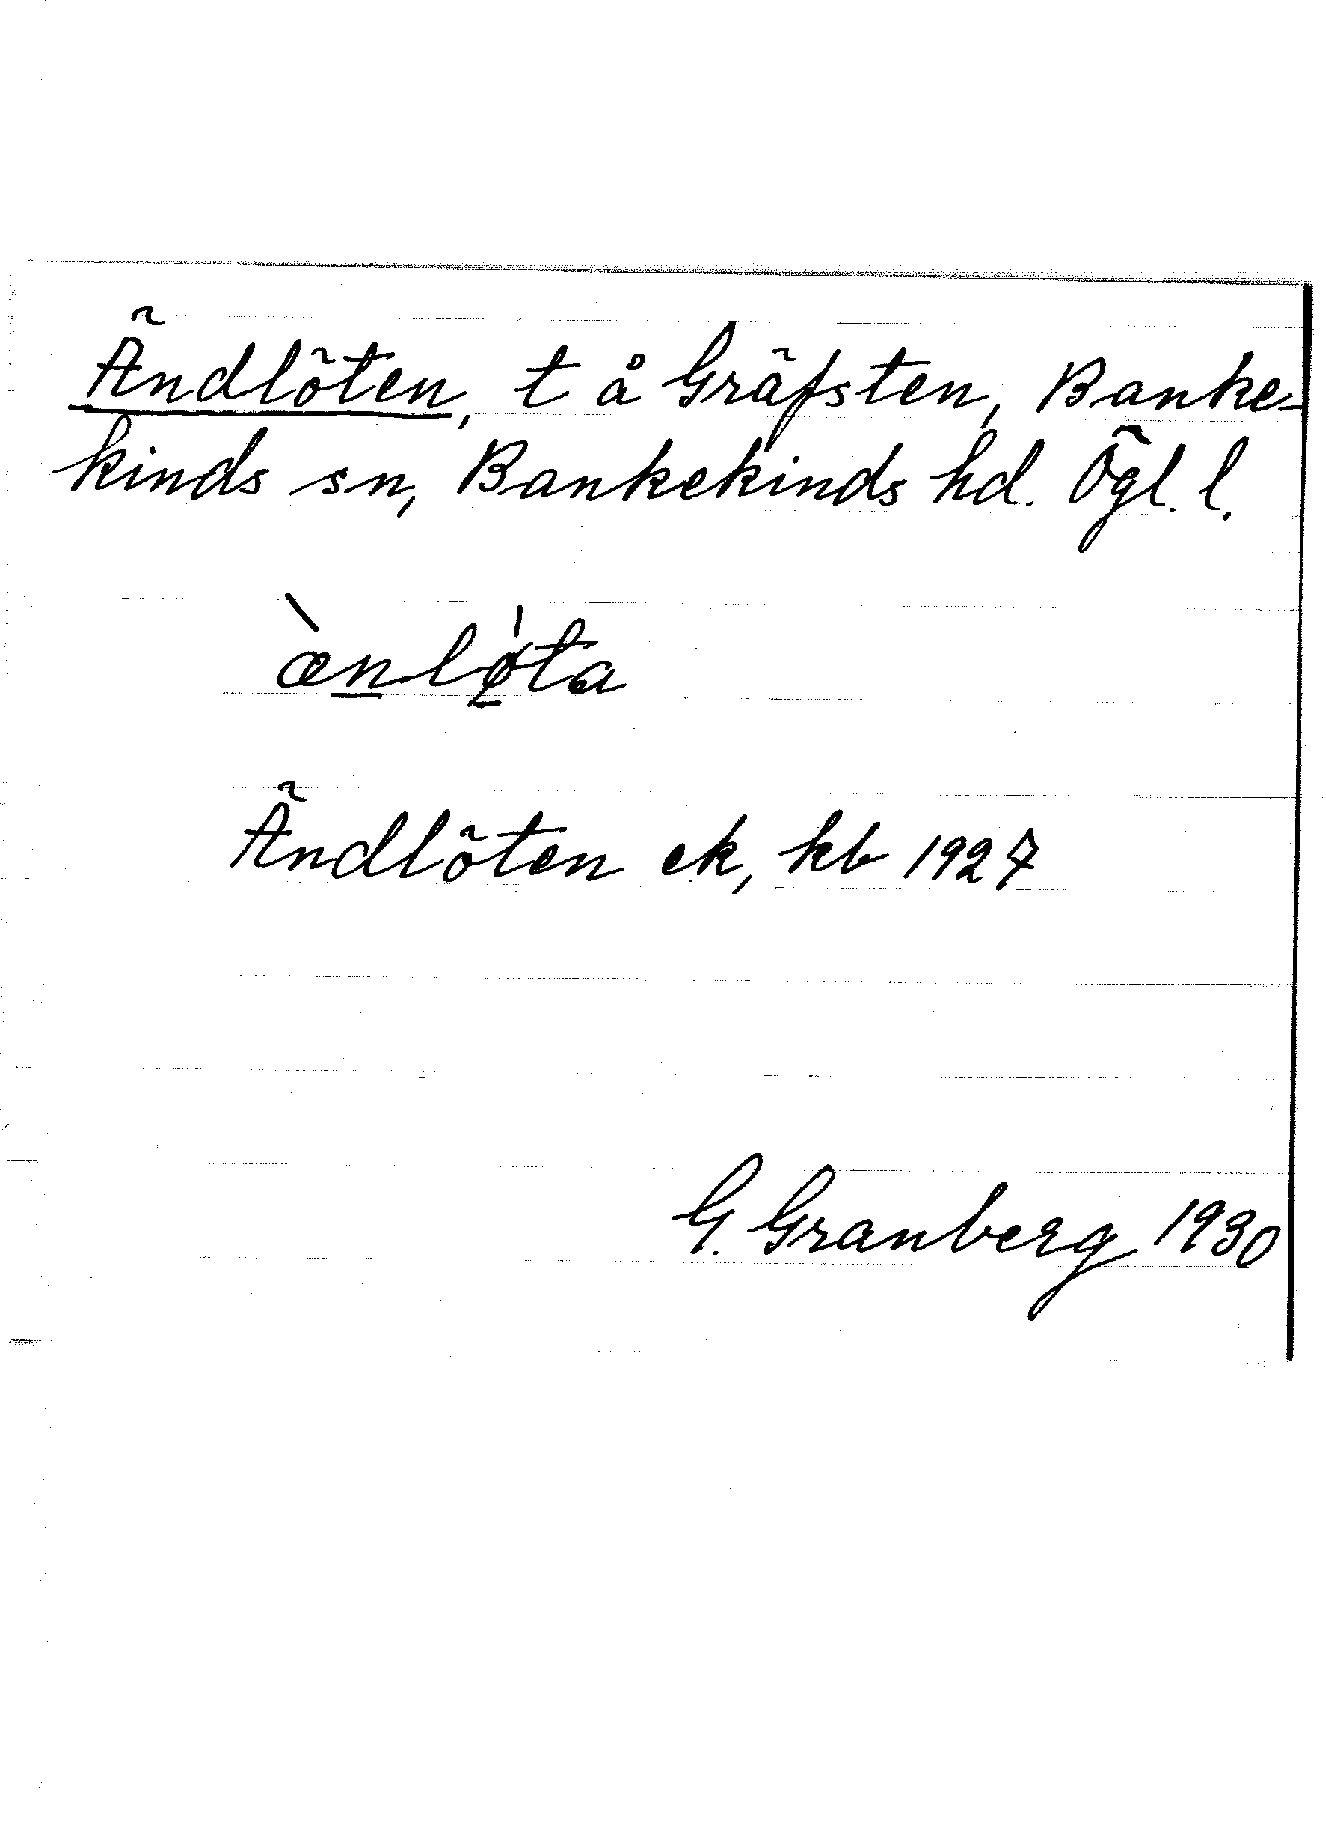 Ändlöten, t å Gräfsten, Banke-
kinds sn, Bankekinds hd. Ögl. l.
æ̀nlø̀ta
Ändlöten ek, kb 1927
G. Granberg 1930